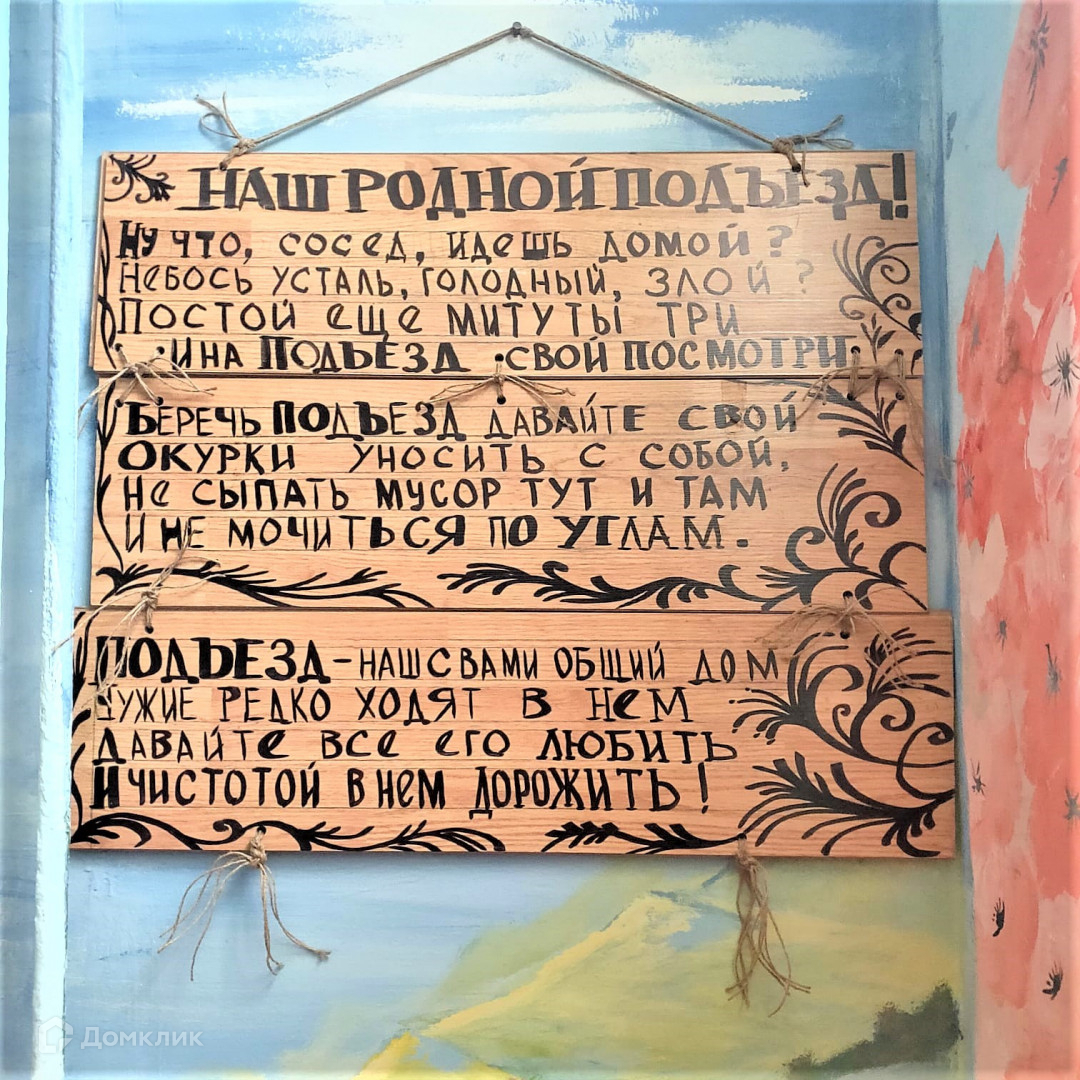 НАШ РОДНОЙ ПОДЪЕЗД!
НУ ЧТО, СОСЕД, ИДЕШЬ ДОМОЙ?
НЕБОСЬ УСТАЛЬ, ГОЛОДНЫЙ, ЗЛОЙ?
ПОСТОЙ ЕЩЕ МИТУТЫ ТРИ
И НА ПОДЪЕЗД СВОЙ ПОСМОТРИ.
БЕРЕЧЬ ПОДЪЕЗД ДАВАЙТЕ СВОЙ
ОКУРКИ УНОСИТЬ С СОБОЙ,
НЕ СЫПАТЬ МУСОР ТУТ И ТАМ
И НЕ МОЧИТЬСЯ ПО УГЛАМ.
ПОДЪЕЗД – НАШ С ВАМИ ОБЩИЙ ДОМ
ЧУЖИЕ РЕДКО ХОДЯТ В НЕМ
ДАВАЙТЕ ВСЕ ЕГО ЛЮБИТЬ
И ЧИСТОТОЙ В НЕМ ДОРОЖИТЬ!
Домклик